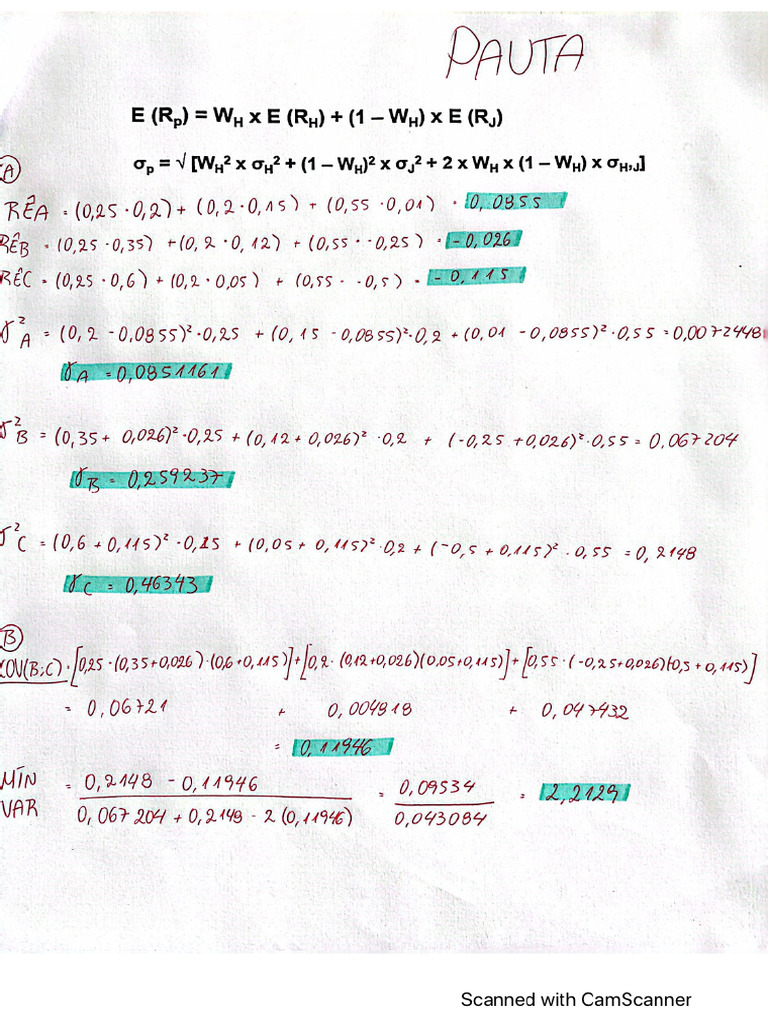 PAUTA
E (Rp) = WH x E (RH) + (1 – WH) x E (RJ)
σp = √ [WH² x σH² + (1 – WH)² x σJ² + 2 x WH x (1 – WH) x σH,J]
A
RÊA = (0,25 · 0,2) + (0,2 · 0,15) + (0,55 · 0,01) = 0,0855
RÊB = (0,25 · 0,35) + (0,2 · 0,12) + (0,55 · -0,25) = -0,026
RÊC = (0,25 · 0,6) + (0,2 · 0,05) + (0,55 · -0,5) = -0,115
σ²A = (0,2 - 0,0855)² · 0,25 + (0,15 - 0,0855)² · 0,2 + (0,01 - 0,0855)² · 0,55 = 0,0072448
σA = 0,0851161
σ²B = (0,35 + 0,026)² · 0,25 + (0,12 + 0,026)² · 0,2 + (-0,25 + 0,026)² · 0,55 = 0,067204
σB = 0,259237
σ²C = (0,6 + 0,115)² · 0,25 + (0,05 + 0,115)² · 0,2 + (-0,5 + 0,115)² · 0,55 = 0,2148
σC = 0,46343
B
COV(B;C) · [0,25 · (0,35+0,026) · (0,6+0,115)] + [0,2 · (0,12+0,026)(0,05+0,115)] + [0,55 · (-0,25+0,026)(-0,5+0,115)]
= 0,06721 + 0,004818 + 0,047432
= 0,11946
MÍN VAR = 0,2148 - 0,11946 / 0,067204 + 0,2148 - 2 (0,11946) = 0,09534 / 0,043084 = 2,2129
Scanned with CamScanner